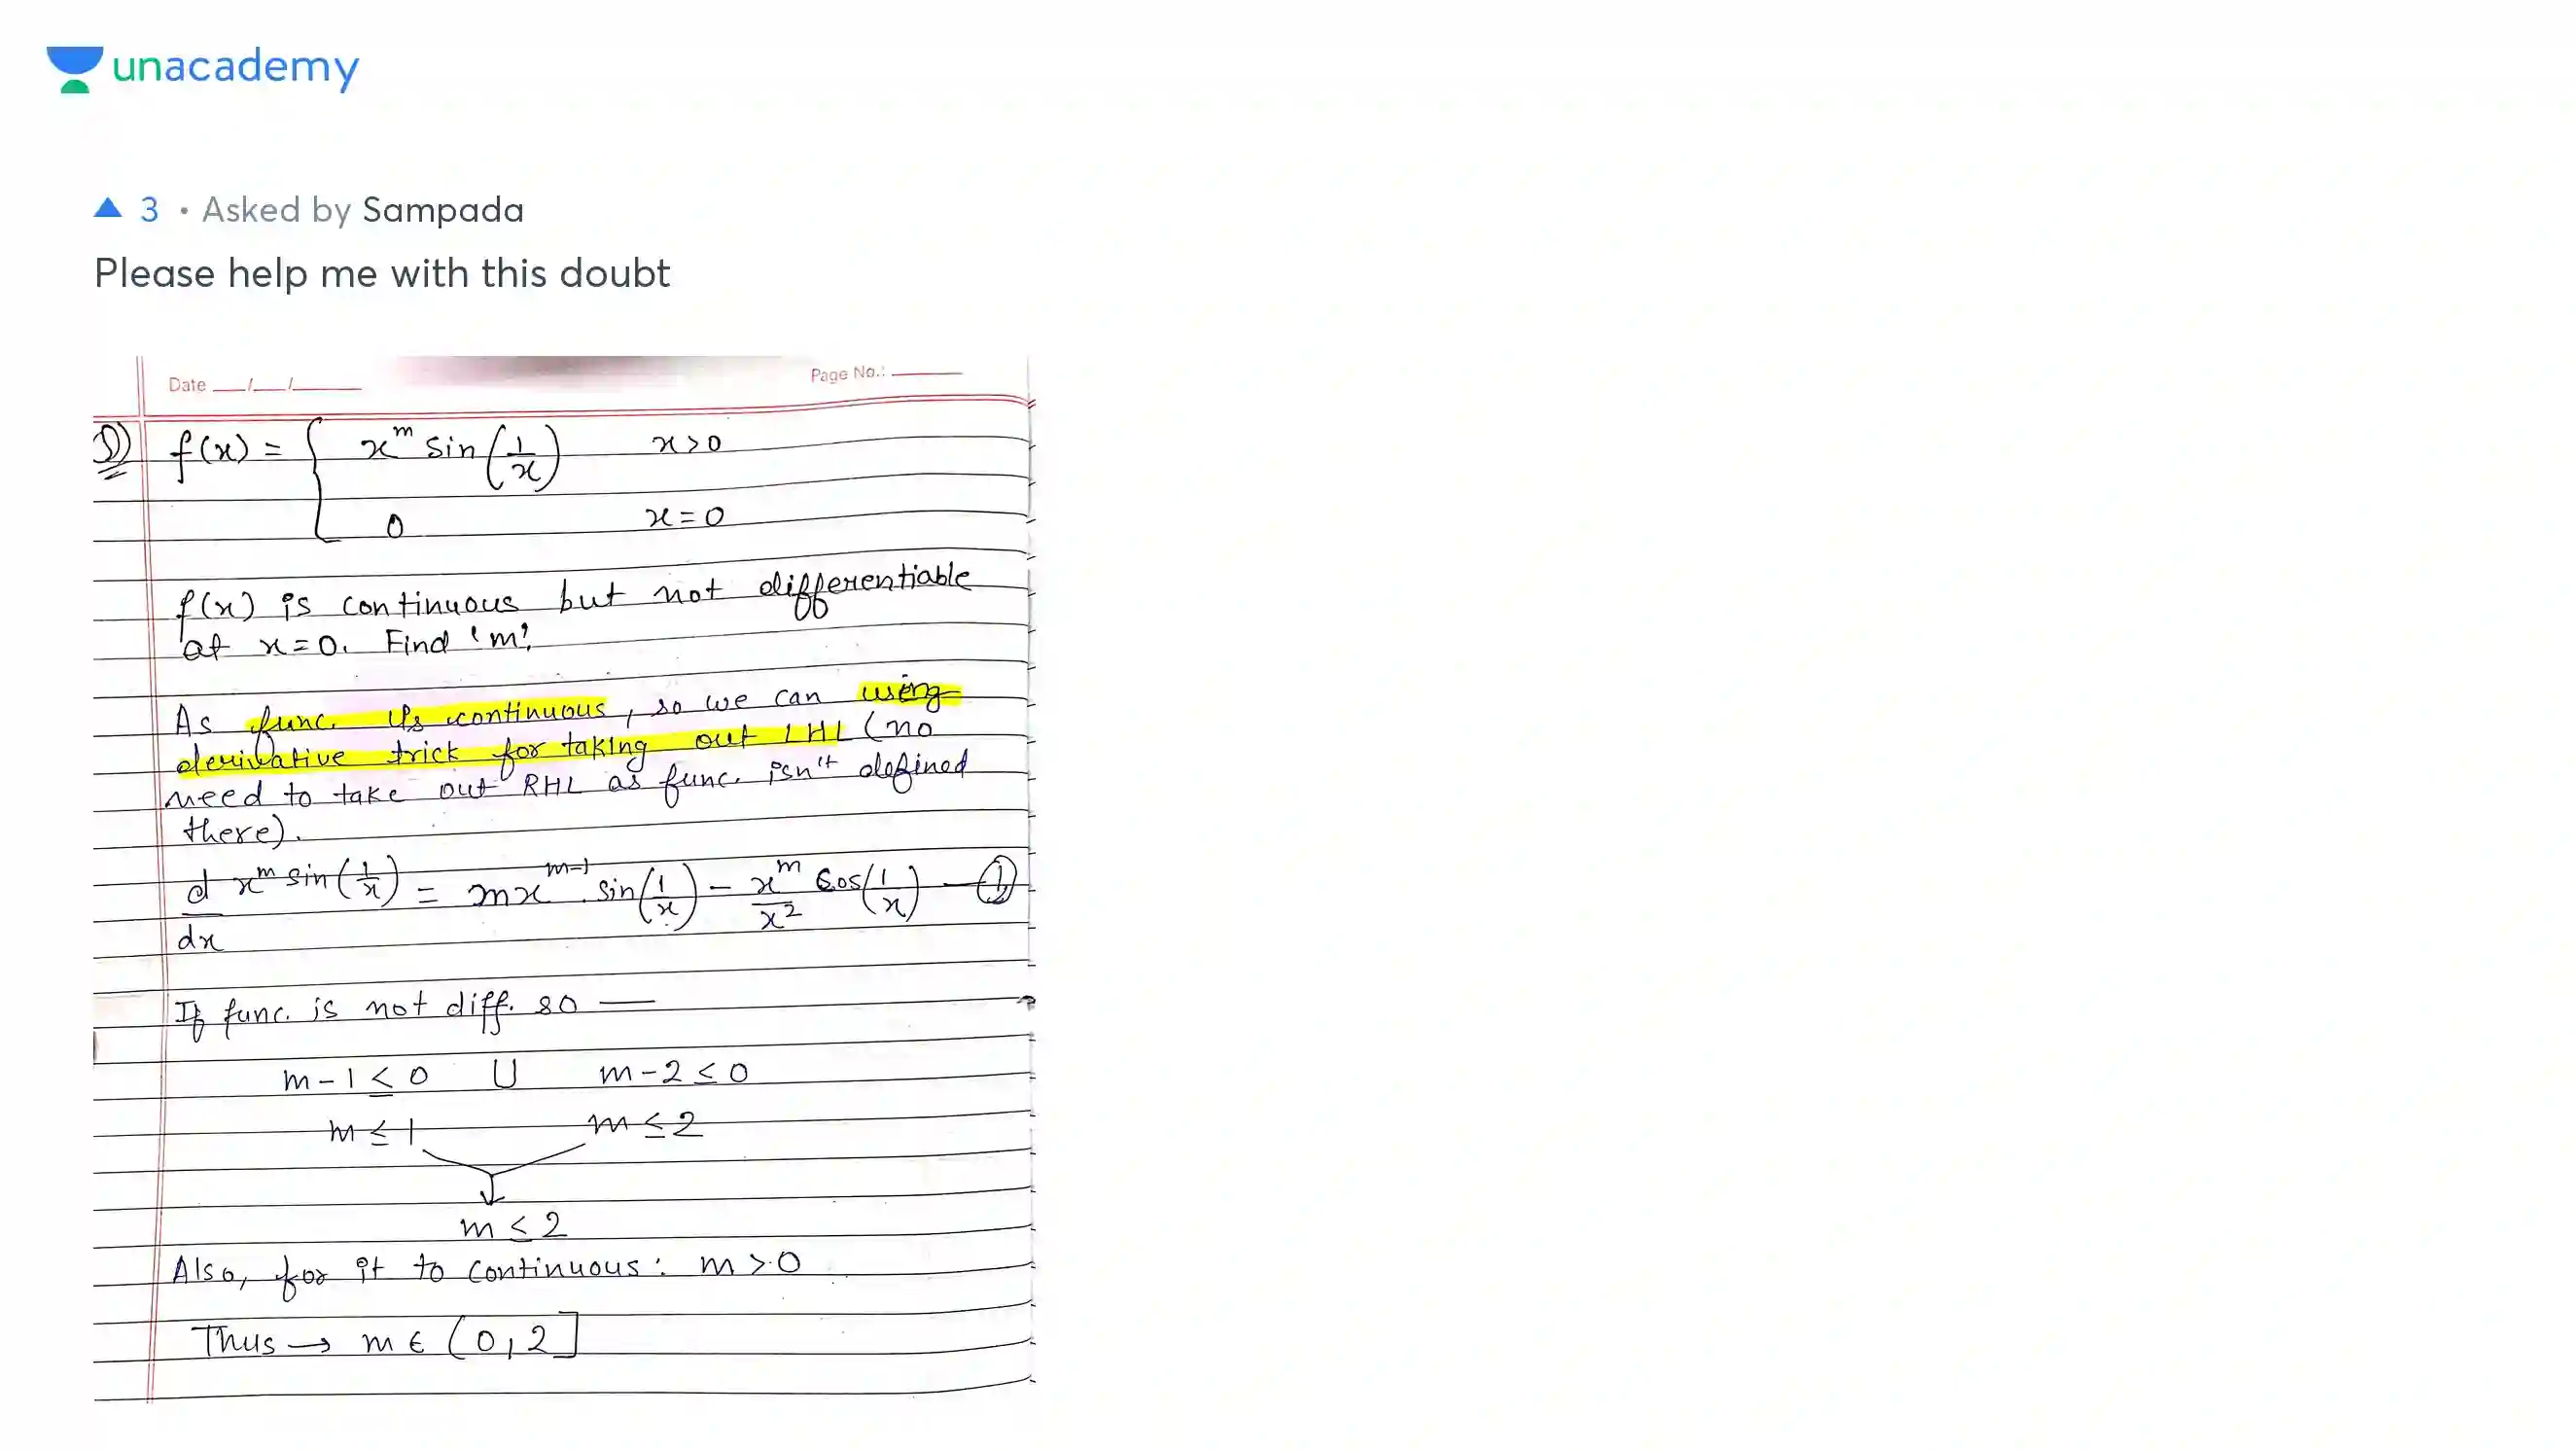 unacademy
▲ 3 • Asked by Sampada
Please help me with this doubt
Date __/__/____
Page No.: ____
Q) f(x) = { x^m sin(1/x) x>0
0 x=0
f(x) is continuous but not differentiable
at x=0. Find 'm'.
As func. is continuous, so we can using
derivative trick for taking out LHL (no
need to take out RHL as func. isn't defined
there).
d/dx x^m sin(1/x) = mx^(m-1) . sin(1/x) - x^m/x^2 cos(1/x) —①
If func. is not diff. so —
m-1 ≤ 0 ∪ m-2 ≤ 0
m ≤ 1 m ≤ 2
m ≤ 2
Also, for it to continuous: m > 0
Thus → m ∈ (0,2]